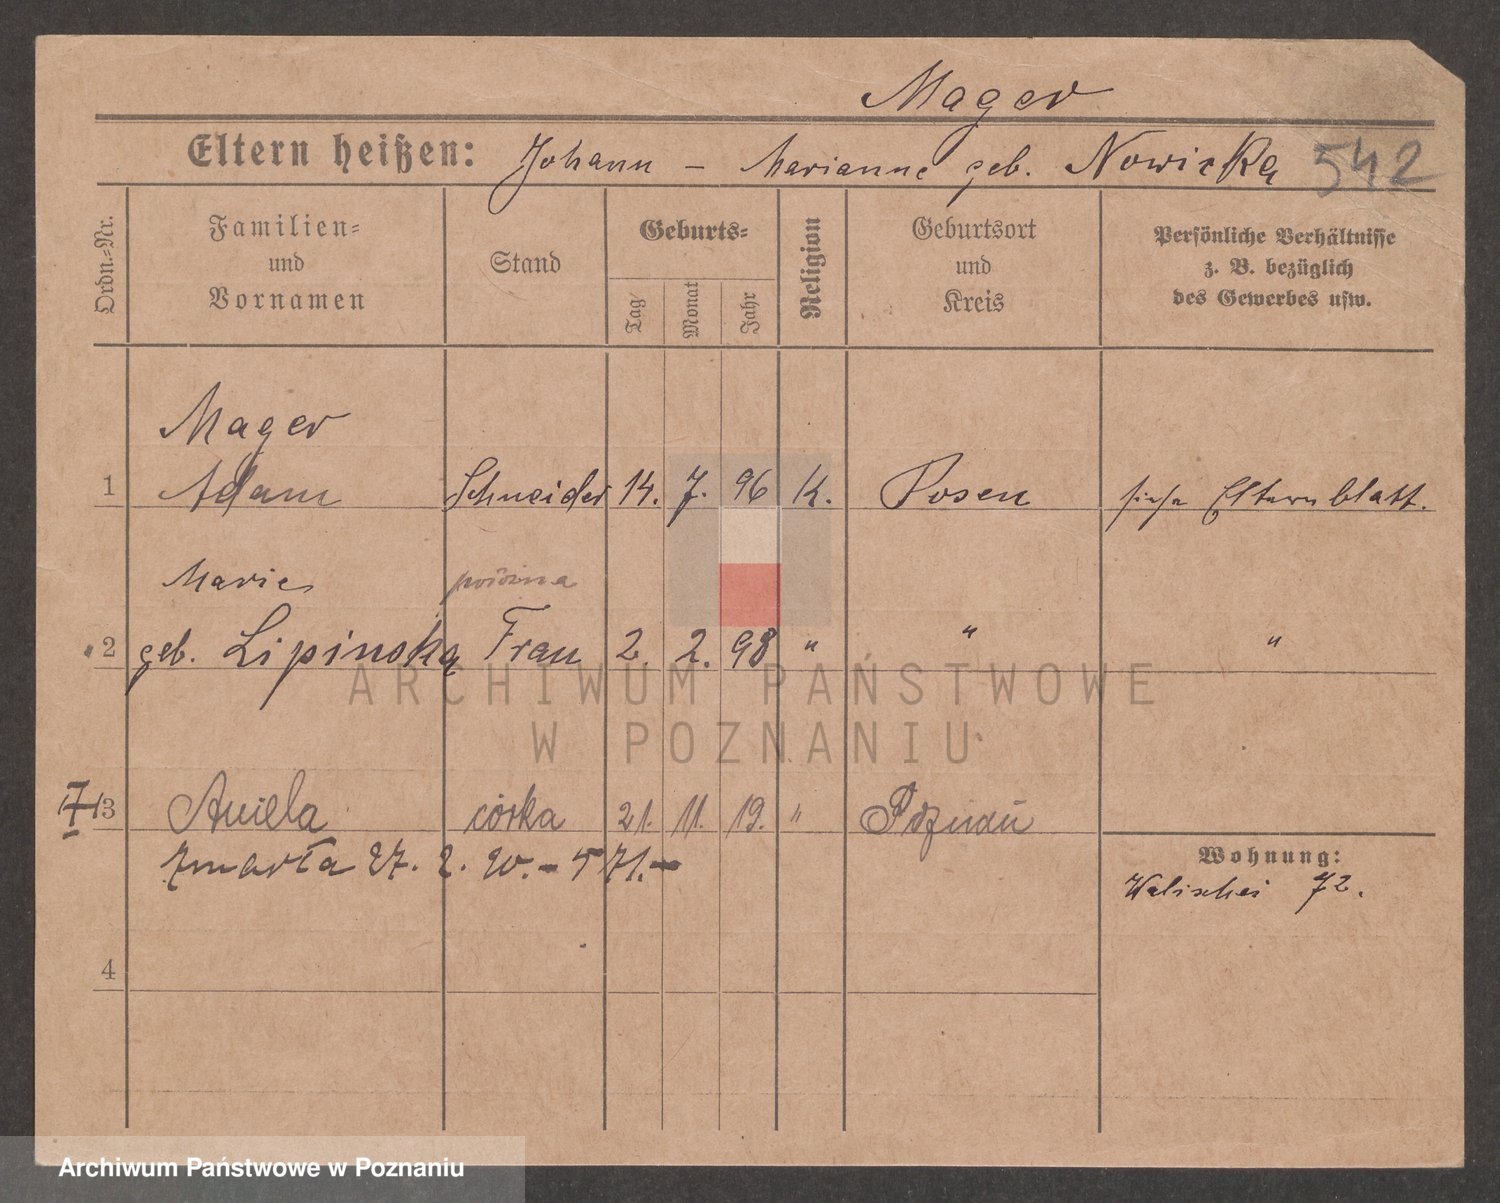 Mager
Eltern heißen: Johann – Marianne geb. Nowicka 542
Ordn.-Nr.
Familien-
und
Vornamen
Stand
Geburts-
Tag
Monat
Jahr
Religion
Geburtsort
und
Kreis
Persönliche Verhältnisse
z. B. bezüglich
des Gewerbes usw.
Mager
1 Adam Schneider 14. 7. 96 K. Posen siehe Elternblatt.
Marie
2 geb. Lipinska Frau 2. 2. 98 " " "
3 Aniela córka 21. 11. 19. " Poznań
zmarła 27. 2. 20. – 571. –
Wohnung:
Walischei 72.
4
ARCHIWUM PAŃSTWOWE
W POZNANIU
Archiwum Państwowe w Poznaniu